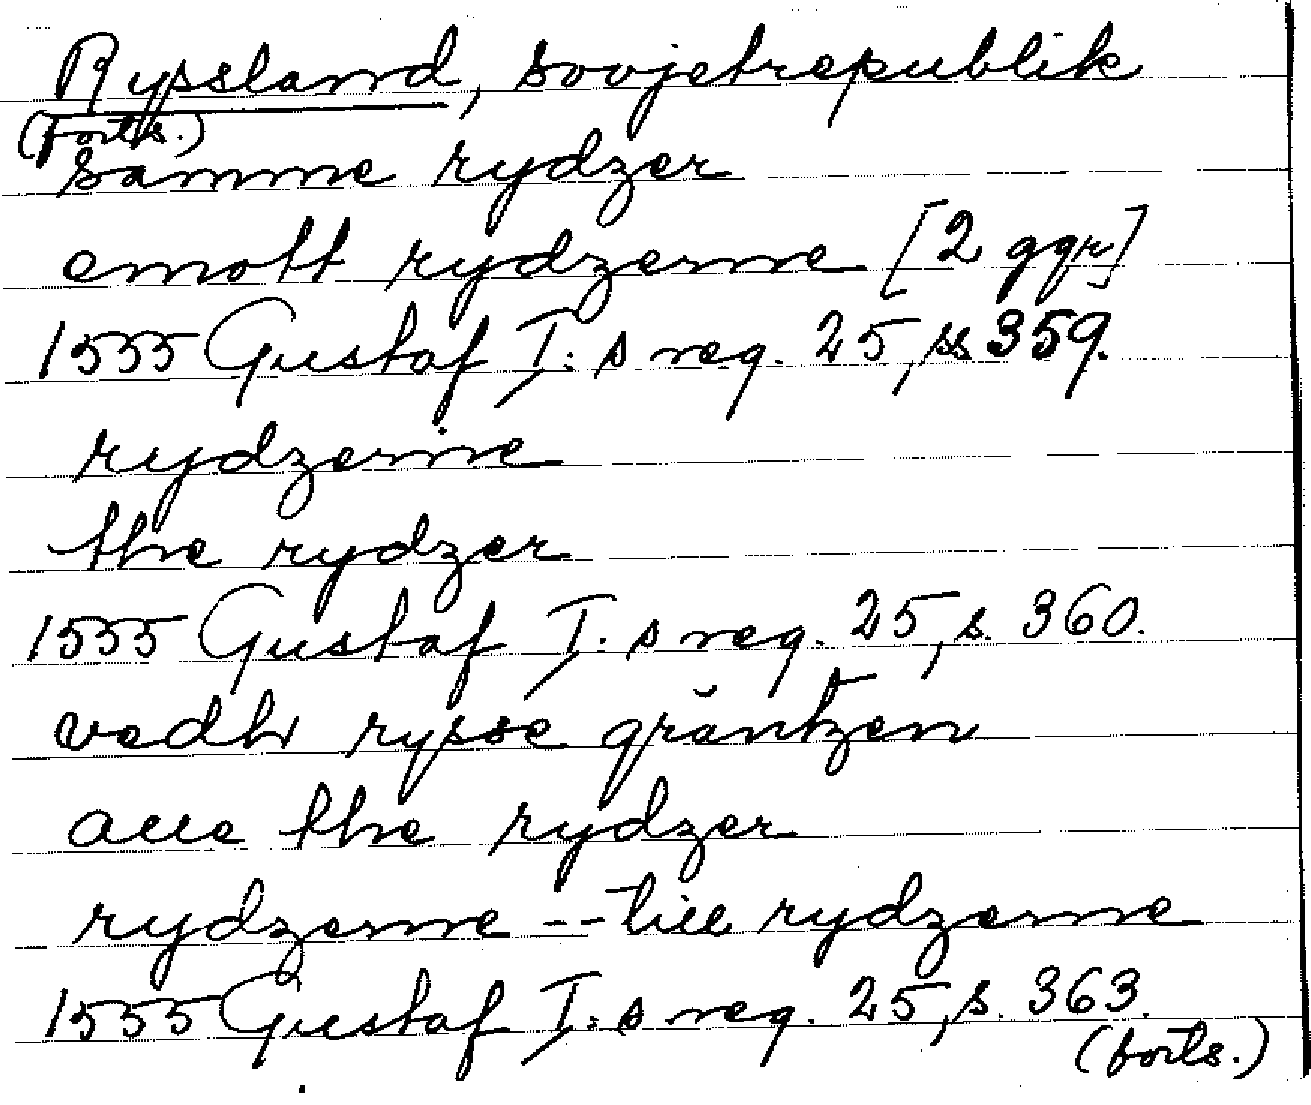 Ryssland, Sovjetrepublik
(forts.)
samme rydzer
emott rydzerne [2 ggr]
1555 Gustaf I:s reg. 25, s. 359.
rydzerne
the rydzer
1555 Gustaf I:s reg. 25, s. 360.
vedh rysse gräntzen
alle the rydzer
rydzerne -- till rydzerne
1555 Gustaf I:s reg. 25, s. 363.
(forts.)